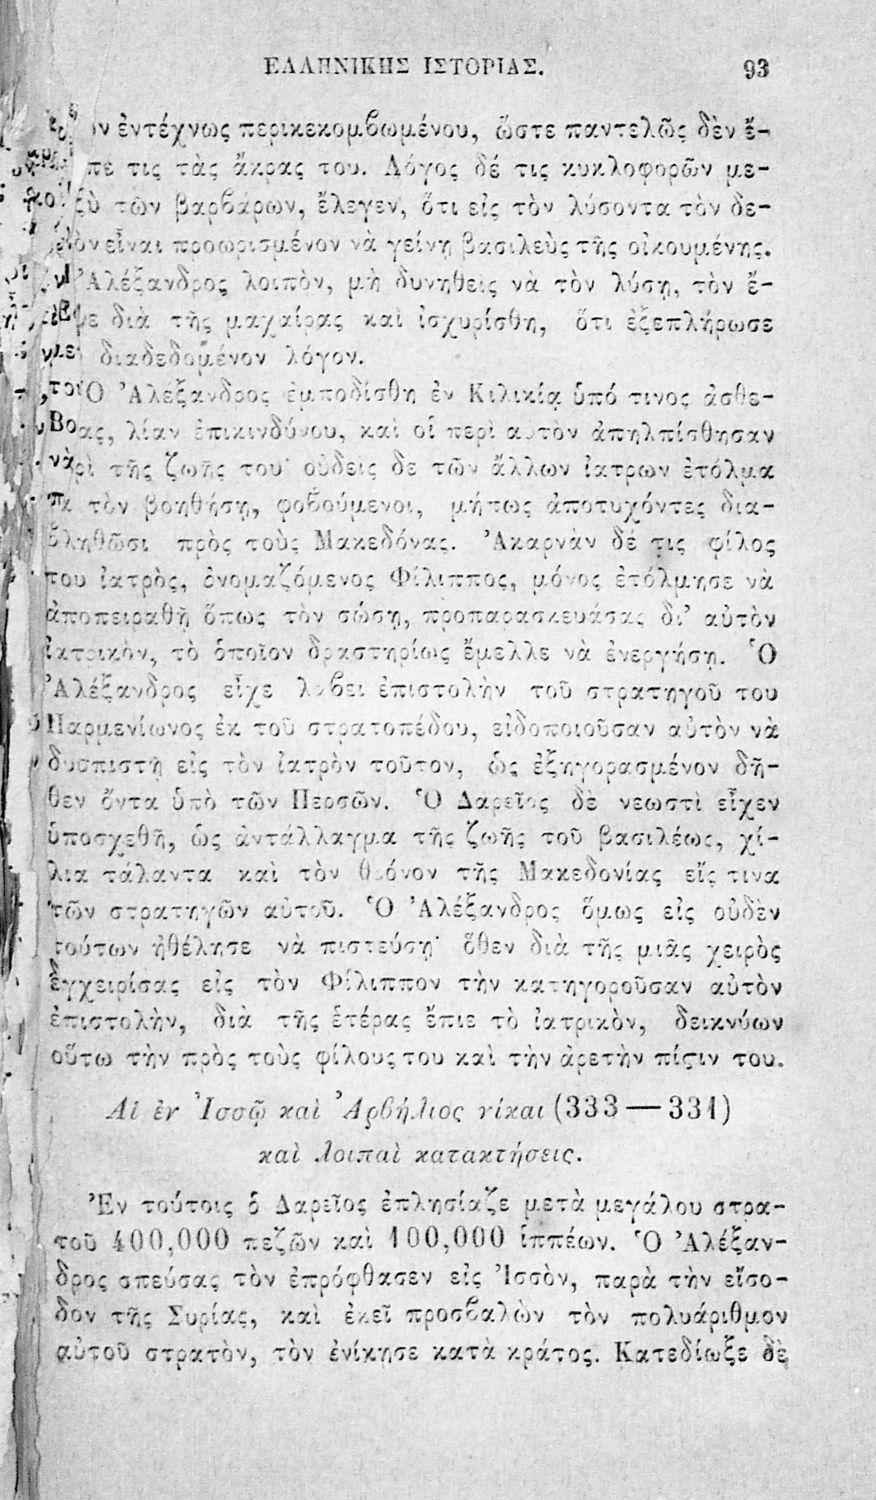 ΕΛΛΗΝΙΚΗΣ ΙΣΤΟΡΙΑΣ. 93
ἐντέχνως περικεκομβωμένου, ὥστε παντελῶς δὲν ἔ-
πε τις τὰς ἄκρας του. Λόγος δέ τις κυκλοφορῶν με-
ξὺ τῶν βαρβάρων, ἔλεγεν, ὅτι εἰς τὸν λύσοντα τὸν δε-
εἶναι προωρισμένον νὰ γείνῃ βασιλεὺς τῆς οἰκουμένης.
Ἀλέξανδρος λοιπὸν, μὴ δυνηθεὶς νὰ τὸν λύσῃ, τὸν ἔ-
ψε διὰ τῆς μαχαίρας καὶ ἰσχυρίσθη, ὅτι ἐξεπλήρωσε
διαδεδομένον λόγον.
Ὁ Ἀλέξανδρος ἐμποδίσθη ἐν Κιλικίᾳ ὑπό τινος ἀσθε-
ας, λίαν ἐπικινδύνου, καὶ οἱ περὶ αὐτὸν ἀπηλπίσθησαν
ρὶ τῆς ζωῆς του· οὐδεὶς δὲ τῶν ἄλλων ἰατρων ἐτόλμα
τὸν βοηθήσῃ, φοβούμενοι, μήπως ἀποτυχόντες δια-
βληθῶσι πρὸς τοὺς Μακεδόνας. Ἀκαρνὰν δέ τις φίλος
του ἰατρὸς, ὀνομαζόμενος Φίλιππος, μόνος ἐτόλμησε νὰ
ἀποπειραθῇ ὅπως τὸν σώσῃ, προπαρασκευάσας δι' αὐτὸν
ἰατρικὸν, τὸ ὁποῖον δραστηρίως ἔμελλε νὰ ἐνεργήσῃ. Ὁ
Ἀλέξανδρος εἶχε λάβει ἐπιστολὴν τοῦ στρατηγοῦ του
Παρμενίωνος ἐκ τοῦ στρατοπέδου, εἰδοποιοῦσαν αὐτὸν νὰ
δυσπιστῇ εἰς τὸν ἰατρὸν τοῦτον, ὡς ἐξηγορασμένον δῆ-
θεν ὄντα ὑπὸ τῶν Περσῶν. Ὁ Δαρεῖος δὲ νεωστὶ εἶχεν
ὑποσχεθῆ, ὡς ἀντάλλαγμα τῆς ζωῆς τοῦ βασιλέως, χί-
λια τάλαντα καὶ τὸν θρόνον τῆς Μακεδονίας εἴς τινα
τῶν στρατηγῶν αὐτοῦ. Ὁ Ἀλέξανδρος ὅμως εἰς οὐδὲν
τούτων ἠθέλησε νὰ πιστεύσῃ· ὅθεν διὰ τῆς μιᾶς χειρὸς
ἐγχειρίσας εἰς τὸν Φίλιππον τὴν κατηγοροῦσαν αὐτὸν
ἐπιστολὴν, διὰ τῆς ἑτέρας ἔπιε τὸ ἰατρικὸν, δεικνύων
οὕτω τὴν πρὸς τοὺς φίλους του καὶ τὴν ἀρετὴν πίστιν του.
Αἱ ἐν Ἰσσῷ καὶ Ἀρβήλιος νίκαι (333—331)
καὶ λοιπαὶ κατακτήσεις.
Ἐν τούτοις ὁ Δαρεῖος ἐπλησίαζε μετὰ μεγάλου στρα-
τοῦ 400,000 πεζῶν καὶ 100,000 ἱππέων. Ὁ Ἀλέξαν-
δρος σπεύσας τὸν ἐπρόφθασεν εἰς Ἰσσὸν, παρὰ τὴν εἴσο-
δον τῆς Συρίας, καὶ ἐκεῖ προσβαλὼν τὸν πολυάριθμον
αὐτοῦ στρατὸν, τὸν ἐνίκησε κατὰ κράτος. Κατεδίωξε δὲ